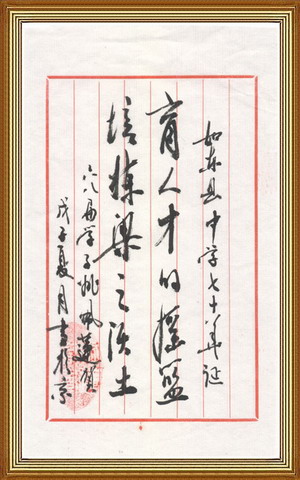 如东县中学七十华诞
育人才的摇篮
培栋梁之沃土
六八届学子姚佩莲贺
戊子夏月书于京